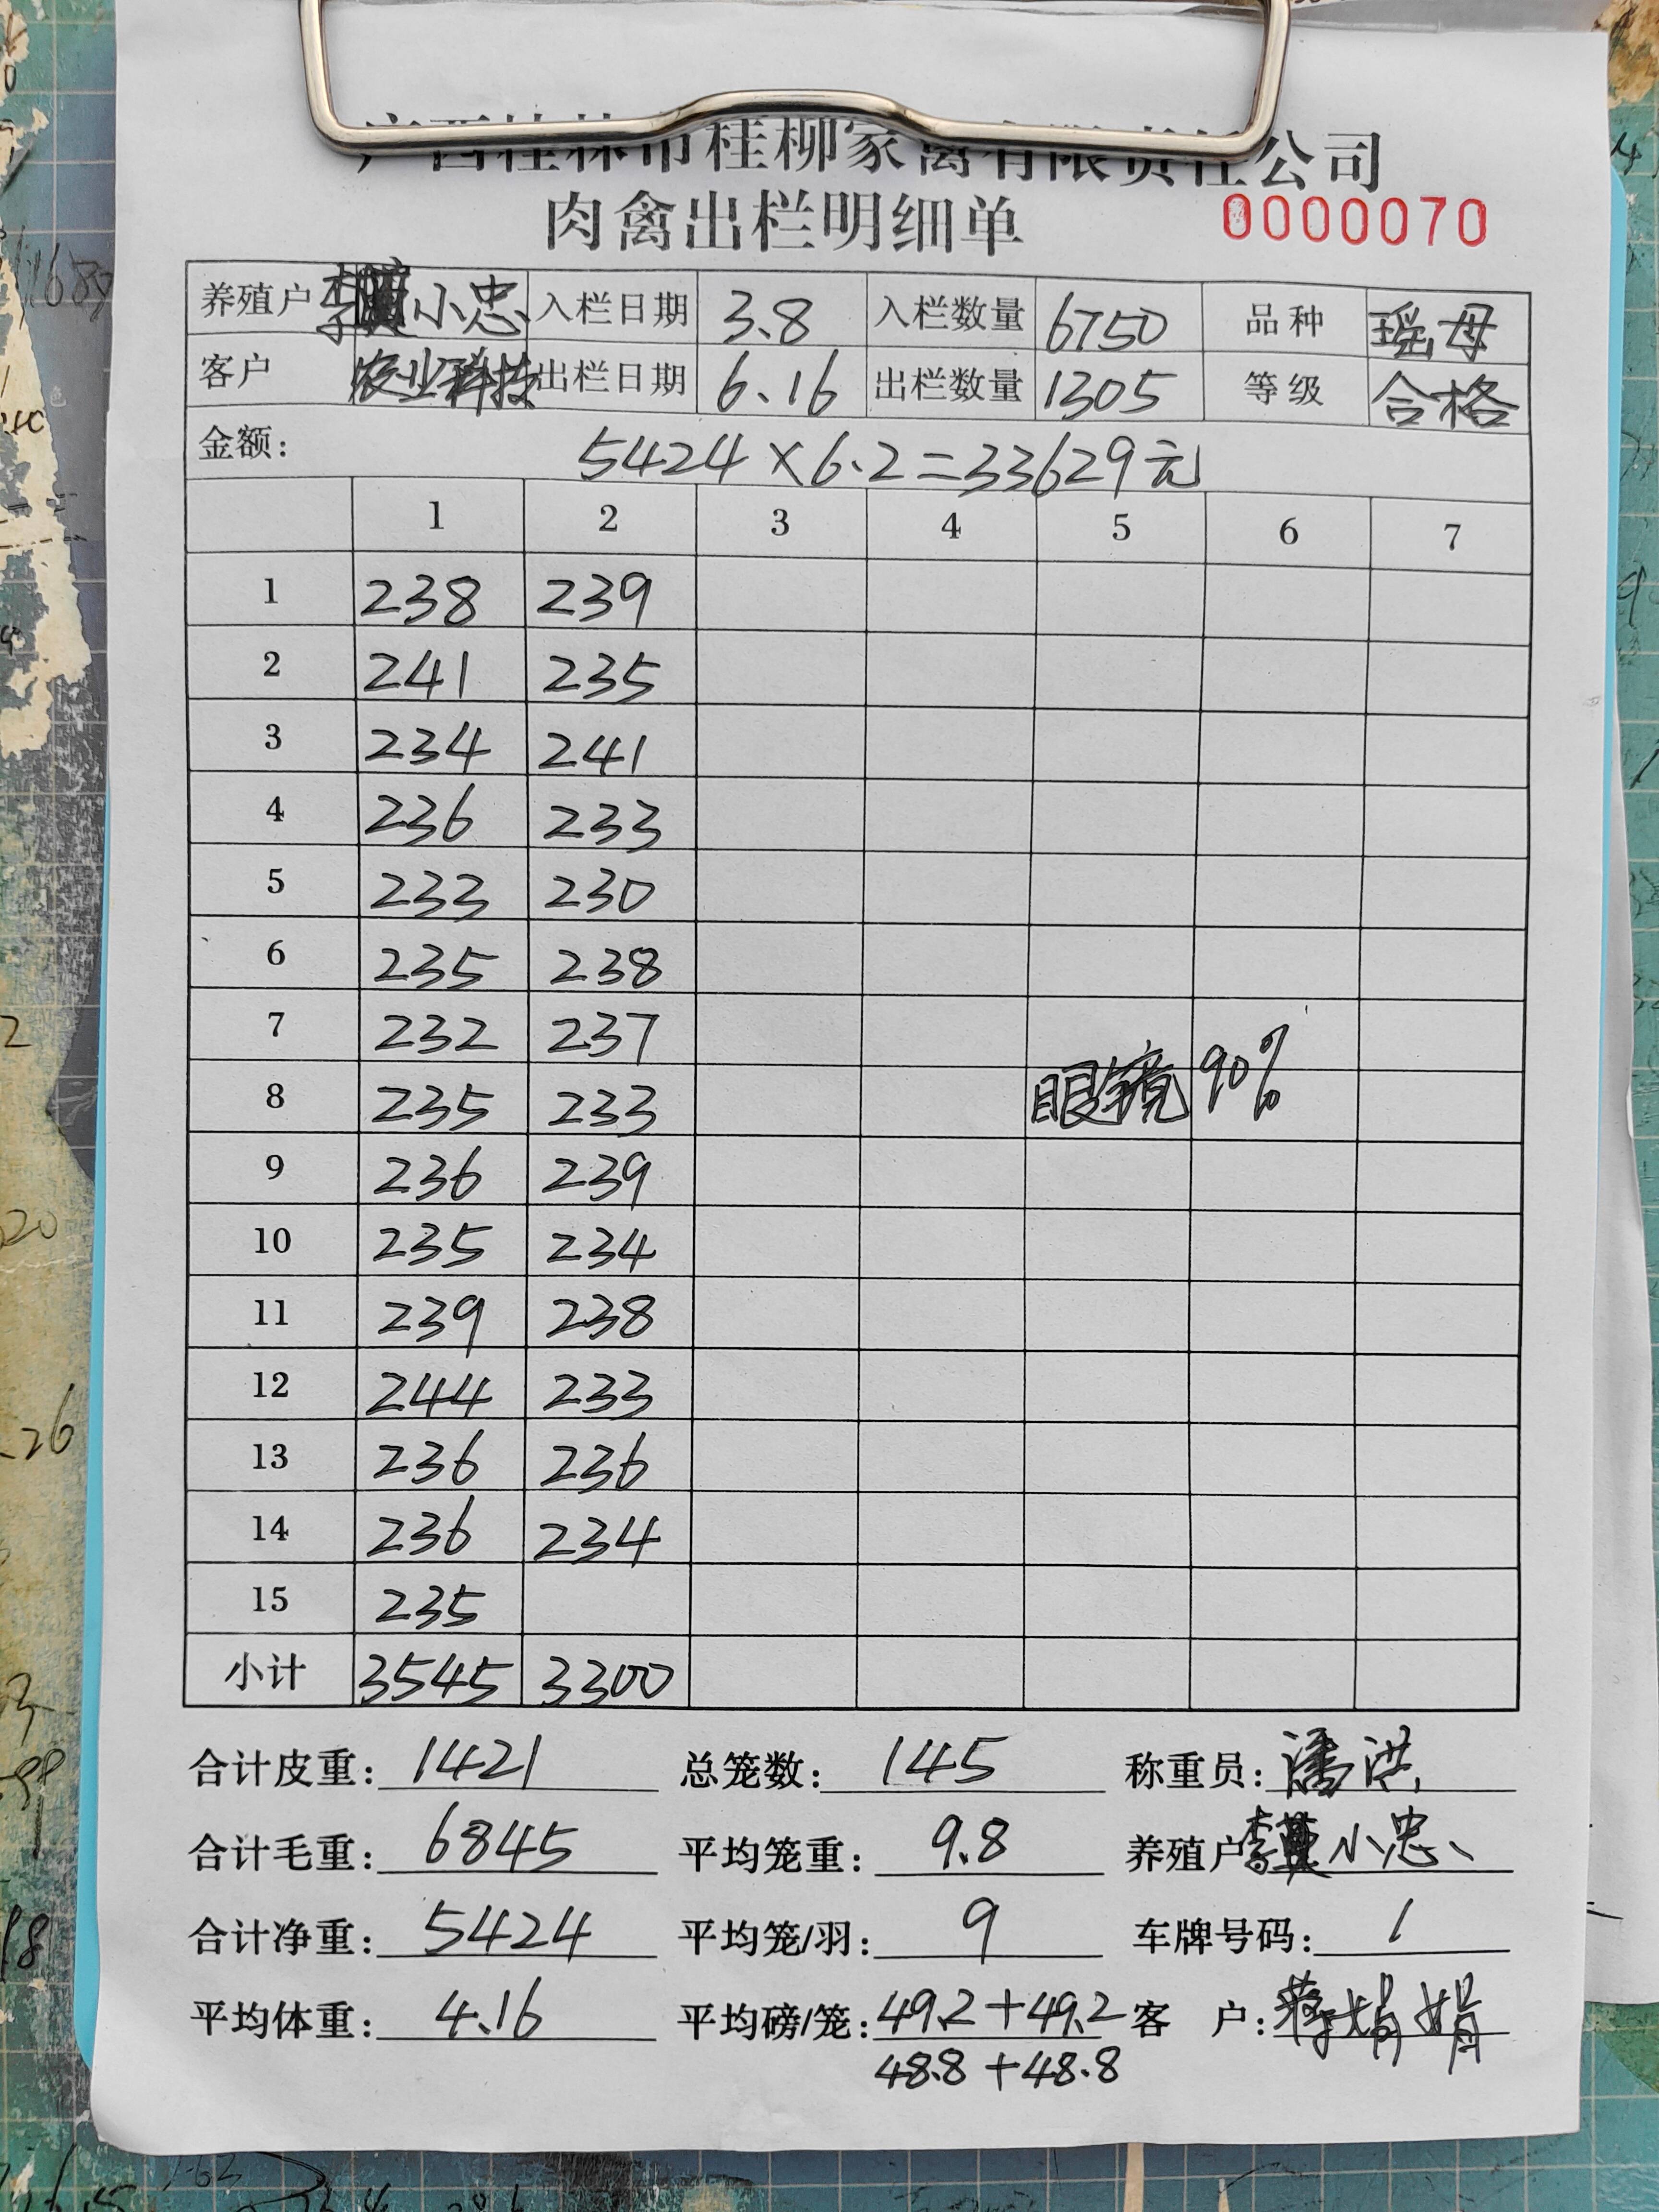 广西桂林市桂柳家禽有限责任公司
肉禽出栏明细单 0000070
养殖户 小忠 入栏日期 3.8 入栏数量 6750 品种 瑶母
客户 农业科技 出栏日期 6.16 出栏数量 1305 等级 合格
金额: 5424×6.2=33629元
1 2 3 4 5 6 7
1 238 239
2 241 235
3 234 241
4 236 233
5 233 230
6 235 238
7 232 237
8 235 233 眼镜90%
9 236 239
10 235 234
11 239 238
12 244 233
13 236 236
14 236 234
15 235
小计 3545 3300
合计皮重: 1421 总笼数: 145 称重员: 潘洪
合计毛重: 6845 平均笼重: 9.8 养殖户 小忠
合计净重: 5424 平均笼/羽: 9 车牌号码: 1
平均体重: 4.16 平均磅/笼: 49.2+49.2 客 户: 蒋娟娟
48.8+48.8